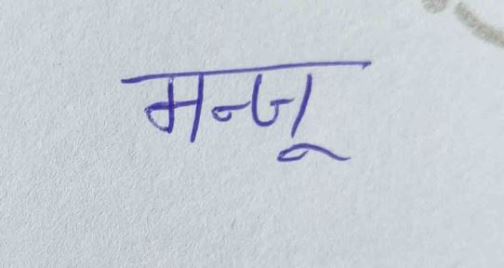 मन्जू